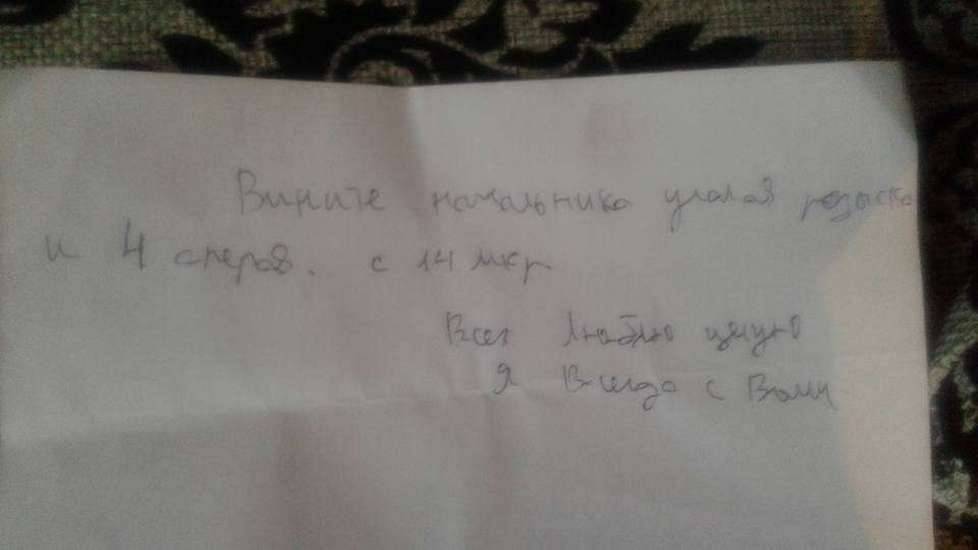 Вините начальника уголов розыска
и 4 оперов. с 14 мкр
Всех люблю целую
Я Всегда с Вами